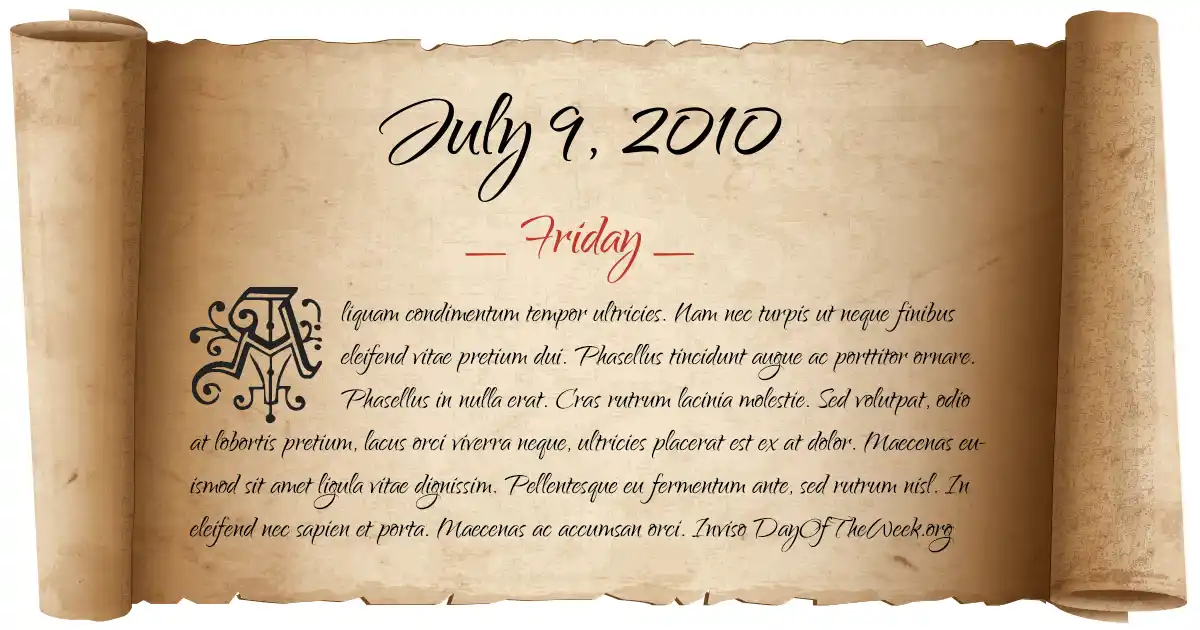 July 9, 2010
_ Friday _
Aliquam condimentum tempor ultricies. Nam nec turpis ut neque finibus
eleifend vitae pretium dui. Phasellus tincidunt augue ac porttitor ornare.
Phasellus in nulla erat. Cras rutrum lacinia molestie. Sed volutpat, odio
at lobortis pretium, lacus orci viverra neque, ultricies placerat est ex at dolor. Maecenas eu-
ismod sit amet ligula vitae dignissim. Pellentesque eu fermentum ante, sed rutrum nisl. In
eleifend nec sapien et porta. Maecenas ac accumsan orci. Inviso DayOfTheWeek.org